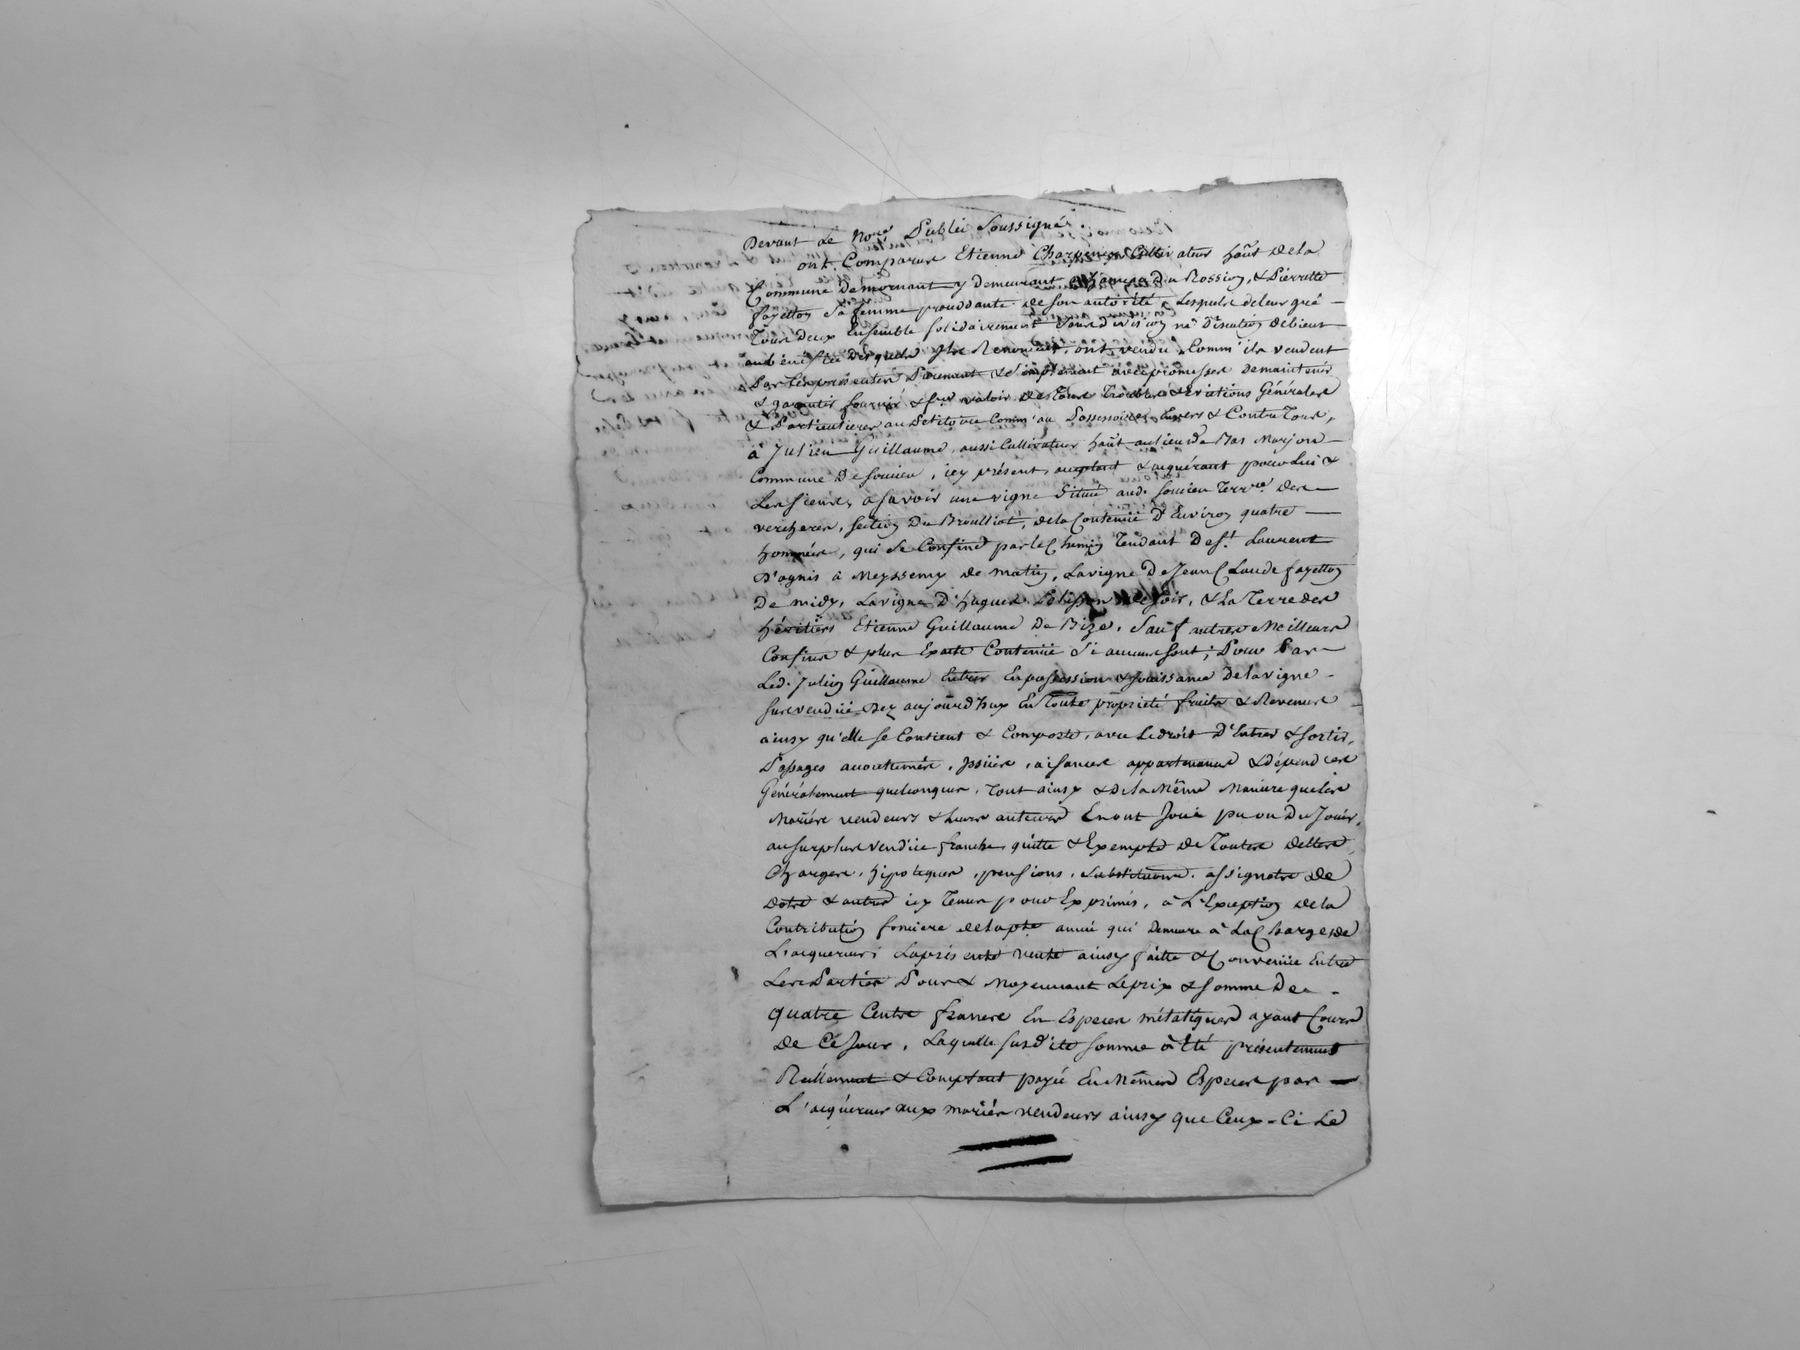 Devant Le Nore Public Soussigné.
ont Comparus Etienne Cultivateur habt de la
Commune de mornant y demeurant hameau du Rossion, & Pierrette
fayetton Sa femme procédante de Son autorité, Lesquels de leur gré
Tous deux Ensemble solidairement Sans division ne discution de biens
aux bénéfices desquels ils Renoncent, ont vendu Comm'ils vendent
Par Ces présentes Purement & Simplement avec promesses de maintenir
& garantir fournir & fre valoir de Tous Troubles & Evictions Générales
& Particulieres au Petitoire Comm'au Possessoire Envers & Contre Tous,
à Julien Guillaume, aussi Cultivateur habt au lieu de Marjon
Commune de Soucieu, icy présent acceptant & acquérant pour Lui &
Les Siens, a Savoir une vigne Située aud. Soucieu Terroe des
vercheres, Section du Brouillat, de la Contenue d'Environ quatre
hommées, qui Se Confine par le Chemin Tendant de St. Laurent
D'agnis à Meyssemy de matin, La vigne De Jean Claude fayetton
De midy, La vigne d'hugues de Soir, & La Terre des
héritiers Etienne Guillaume De Bize, Sauf autres Meilleurs
Confins & plus Exacte Contenue Si aucuns sont; Pour Par
Led. Julien Guillaume Entrer En possession & jouissance de la vigne
Susvendue dez aujourd'huy En Toute propriété fruits & Revenus
ainsy qu'elle se Contient & Comporte, avec Le droit d'Entrer & sortir,
Passages accoutumés, Issües, aisances appartenances & dépendces
Généralement quelconques, Tout ainsy & de la Même Maniere que les
Mariés vendeurs & leurs auteurs En ont Joui pu ou Du Jouir,
au surplus vendüe franche quitte & Exempte de Toutes dettes,
Charges, hipoteques, pensions, Substitutions, assignats de
Dots & autres icy Tenus pour Exprimés, à L'Exception de la
Contribution fonciere de la pte année qui Demeure à La Charge de
L'acquéreur; La présente vente ainsy faitte & Convenüe Entre
Les Parties Pour & Moyennant Le prix & somme De
quatre Cents francs En Especes métaliques ayant Cours
De Ce Jour, Laquelle Susd'ite somme à Eté présentement
Réellement & Comptant payée En Mêmes Especes par
L'acquéreur aux mariés vendeurs ainsy que Ceux-Ci Le